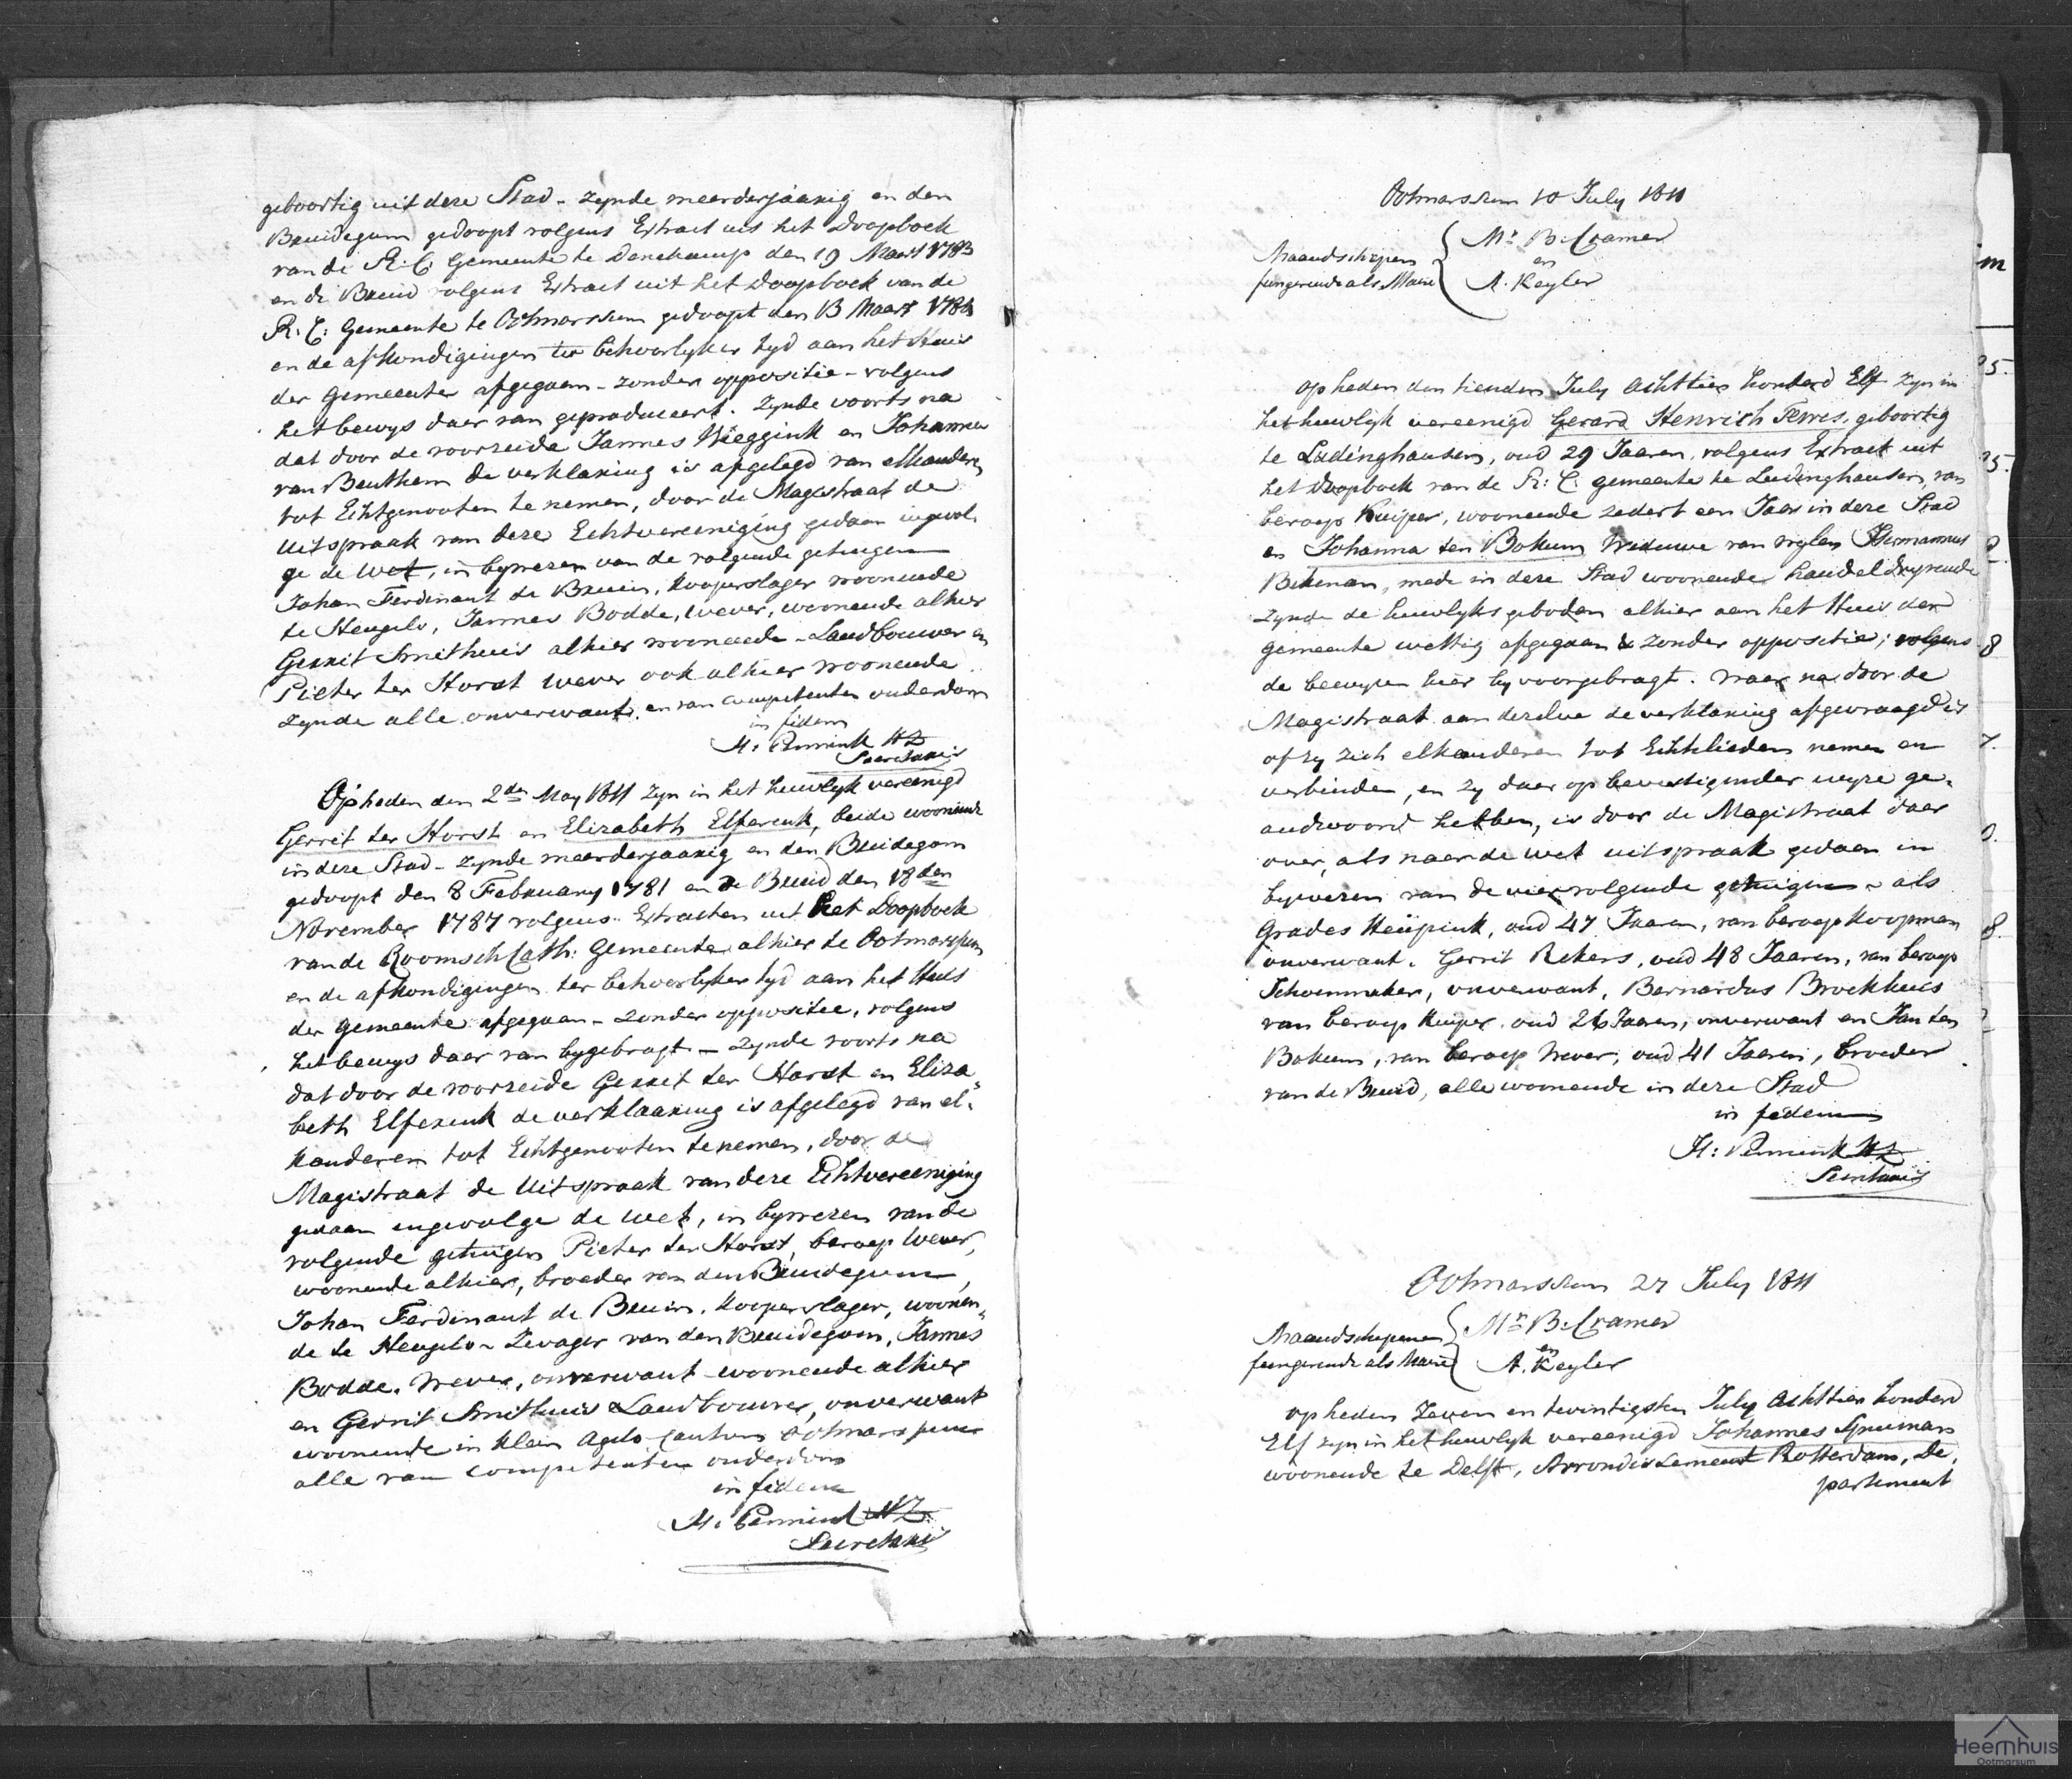 geboortig uit deze Stad - zynde meerderjaarig en den
Bruidegom gedoopt volgens Extract uit het Doopboek
van de R: C: Gemeente te Denekamp den 19 Maart 1783
en de Bruid volgens Extract uit het Doopboek van de
R: C: Gemeente te Ootmarssum gedoopt den 13 Maart
en de afkondigingen ter behoorlyker tyd aan het Huis
der Gemeente afgegaan - zonder oppositie - volgens
het bewys daar van geproduceert. zynde voorts na
dat door de voorzeide Jannes Wieggink en Johanna
van Benthem de verklaring is afgelegd van elkanderen
tot Echtgenooten te nemen, door de Magistraat de
uitspraak van deze Echtvereeniging gedaan ingevol-
ge de Wet, in bywezen van de volgende getuigen
Johan Ferdinant de Bruin, Kooperslager woonende
te Hengelo, Jannes Bodde, Wever, woonende alhier
Gerrit Smithuis alhier woonende - Landbouwer en
Pieter ter Horst Wever ook alhier woonende
zynde alle onverwant, en van competenten ouderdom
in fidem
H: Pennink HZ
Secretaris
Op heden den 2den May 1811 zyn in het huwlyk vereenigd
Gerrit ter Horst en Elizabeth Elferink, beide woonende
in deze Stad - zynde meerderjaarig en den Bruidegom
gedoopt den 8 February 1781 en de Bruid den 18den
November 1787 volgens Extracten uit het Doopboek
van de Roomsch Cath: Gemeente alhier te Ootmarssum
en de afkondigingen ter behoorlyker tyd aan het Huis
der Gemeente afgegaan - zonder oppositie, volgens
het bewys daar van bygebragt - zynde voorts na
dat door de voorzeide Gerrit ter Horst en Eliza
beth Elferink de verklaaring is afgelegd van el-
kanderen tot Echtgenooten te nemen, door de
Magistraat de Uitspraak van deze Echtvereeniging
gedaan ingevolge de Wet, in bywezen van de
volgende getuigen Pieter ter Horst, beroep Wever,
woonende alhier, broeder van den Bruidegom,
Johan Ferdinant de Bruin, Kooperslager, woonen-
de te Hengelo - Zwager van den Bruidegom, Jannes
Bodde, Wever, onverwant woonende alhier
en Gerrit Smithuis Landbouwer, onverwant
woonende in klein Agelo Canton Ootmarssum
alle van competenten ouderdom
in fidem
H: Pennink HZ
Secretaris
Ootmarssum 10 July 1811
Mr B: Cramer
Maandschepen
en
fungerende als Maire A. Keyler
op heden den tienden July Achttien honderd Elf zyn in
het huwlyk vereenigd Gerard Henrich Tewes, geboortig
te Ludinghausen, oud 29 Jaaren, volgens Extract uit
het Doopboek van de R: C: gemeente te Ludinghausen, van
beroep Kuiper, woonende zedert een Jaar in deze Stad
en Johanna ten Bokum Weduwe van wylen Hermannus
mede in deze Stad woonende handel dryvende
zynde de huwlyks geboden alhier aan het Huis der
gemeente wettig afgegaan & zonder oppositie; volgens
de bewyzen hier by voorgebragt. waar na door de
Magistraat aan dezelve de verklaring afgevraagd is
of zy zich elkanderen tot Echtelieden nemen en
verbinden, en zy daar op bevestigender wyze ge-
andwoord hebben, is door de Magistraat daar
over, als naar de wet uitspraak gedaan in
bywezen van de vier volgende getuigen - als
Grades Heupink, oud 47 Jaaren, van beroep Koopman
onverwant. Gerrit Rekers, oud 48 Jaaren, van beroep
Schoenmaker, onverwant, Bernardus Brockhuis
van beroep Kuiper, oud 26 Jaaren, onverwant en Jan ten
Bokum, van beroep Wever, oud 41 Jaaren, broeder
van de Bruid, alle woonende in deze Stad
in fidem
H: Pennink HZ
Secretaris
Ootmarssum 27 July 1811
Maandschepenen Mr B: Cramer
en
fungerende als Maire A. Keyler
op heden Zeven en twintigsten July Achttien honderd
Elf zyn in het huwlyk vereenigd Johannes
woonende te Delft, Arrondissement Rotterdam, De-
partement
m
8
8.
Heemhuis
Ootmarsum